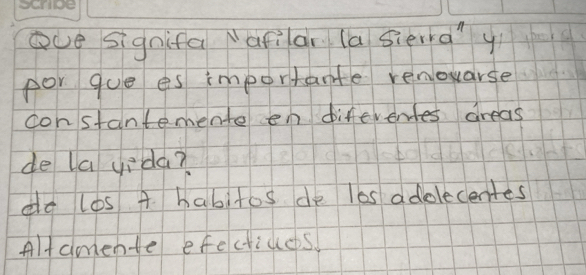 Scribe
Que signifa "afilar la sierra" y
por que es importante renovarse
constantemente en diferentes áreas
de la vida?
de los 7 habitos de los adolecentes
Altamente efectivos.